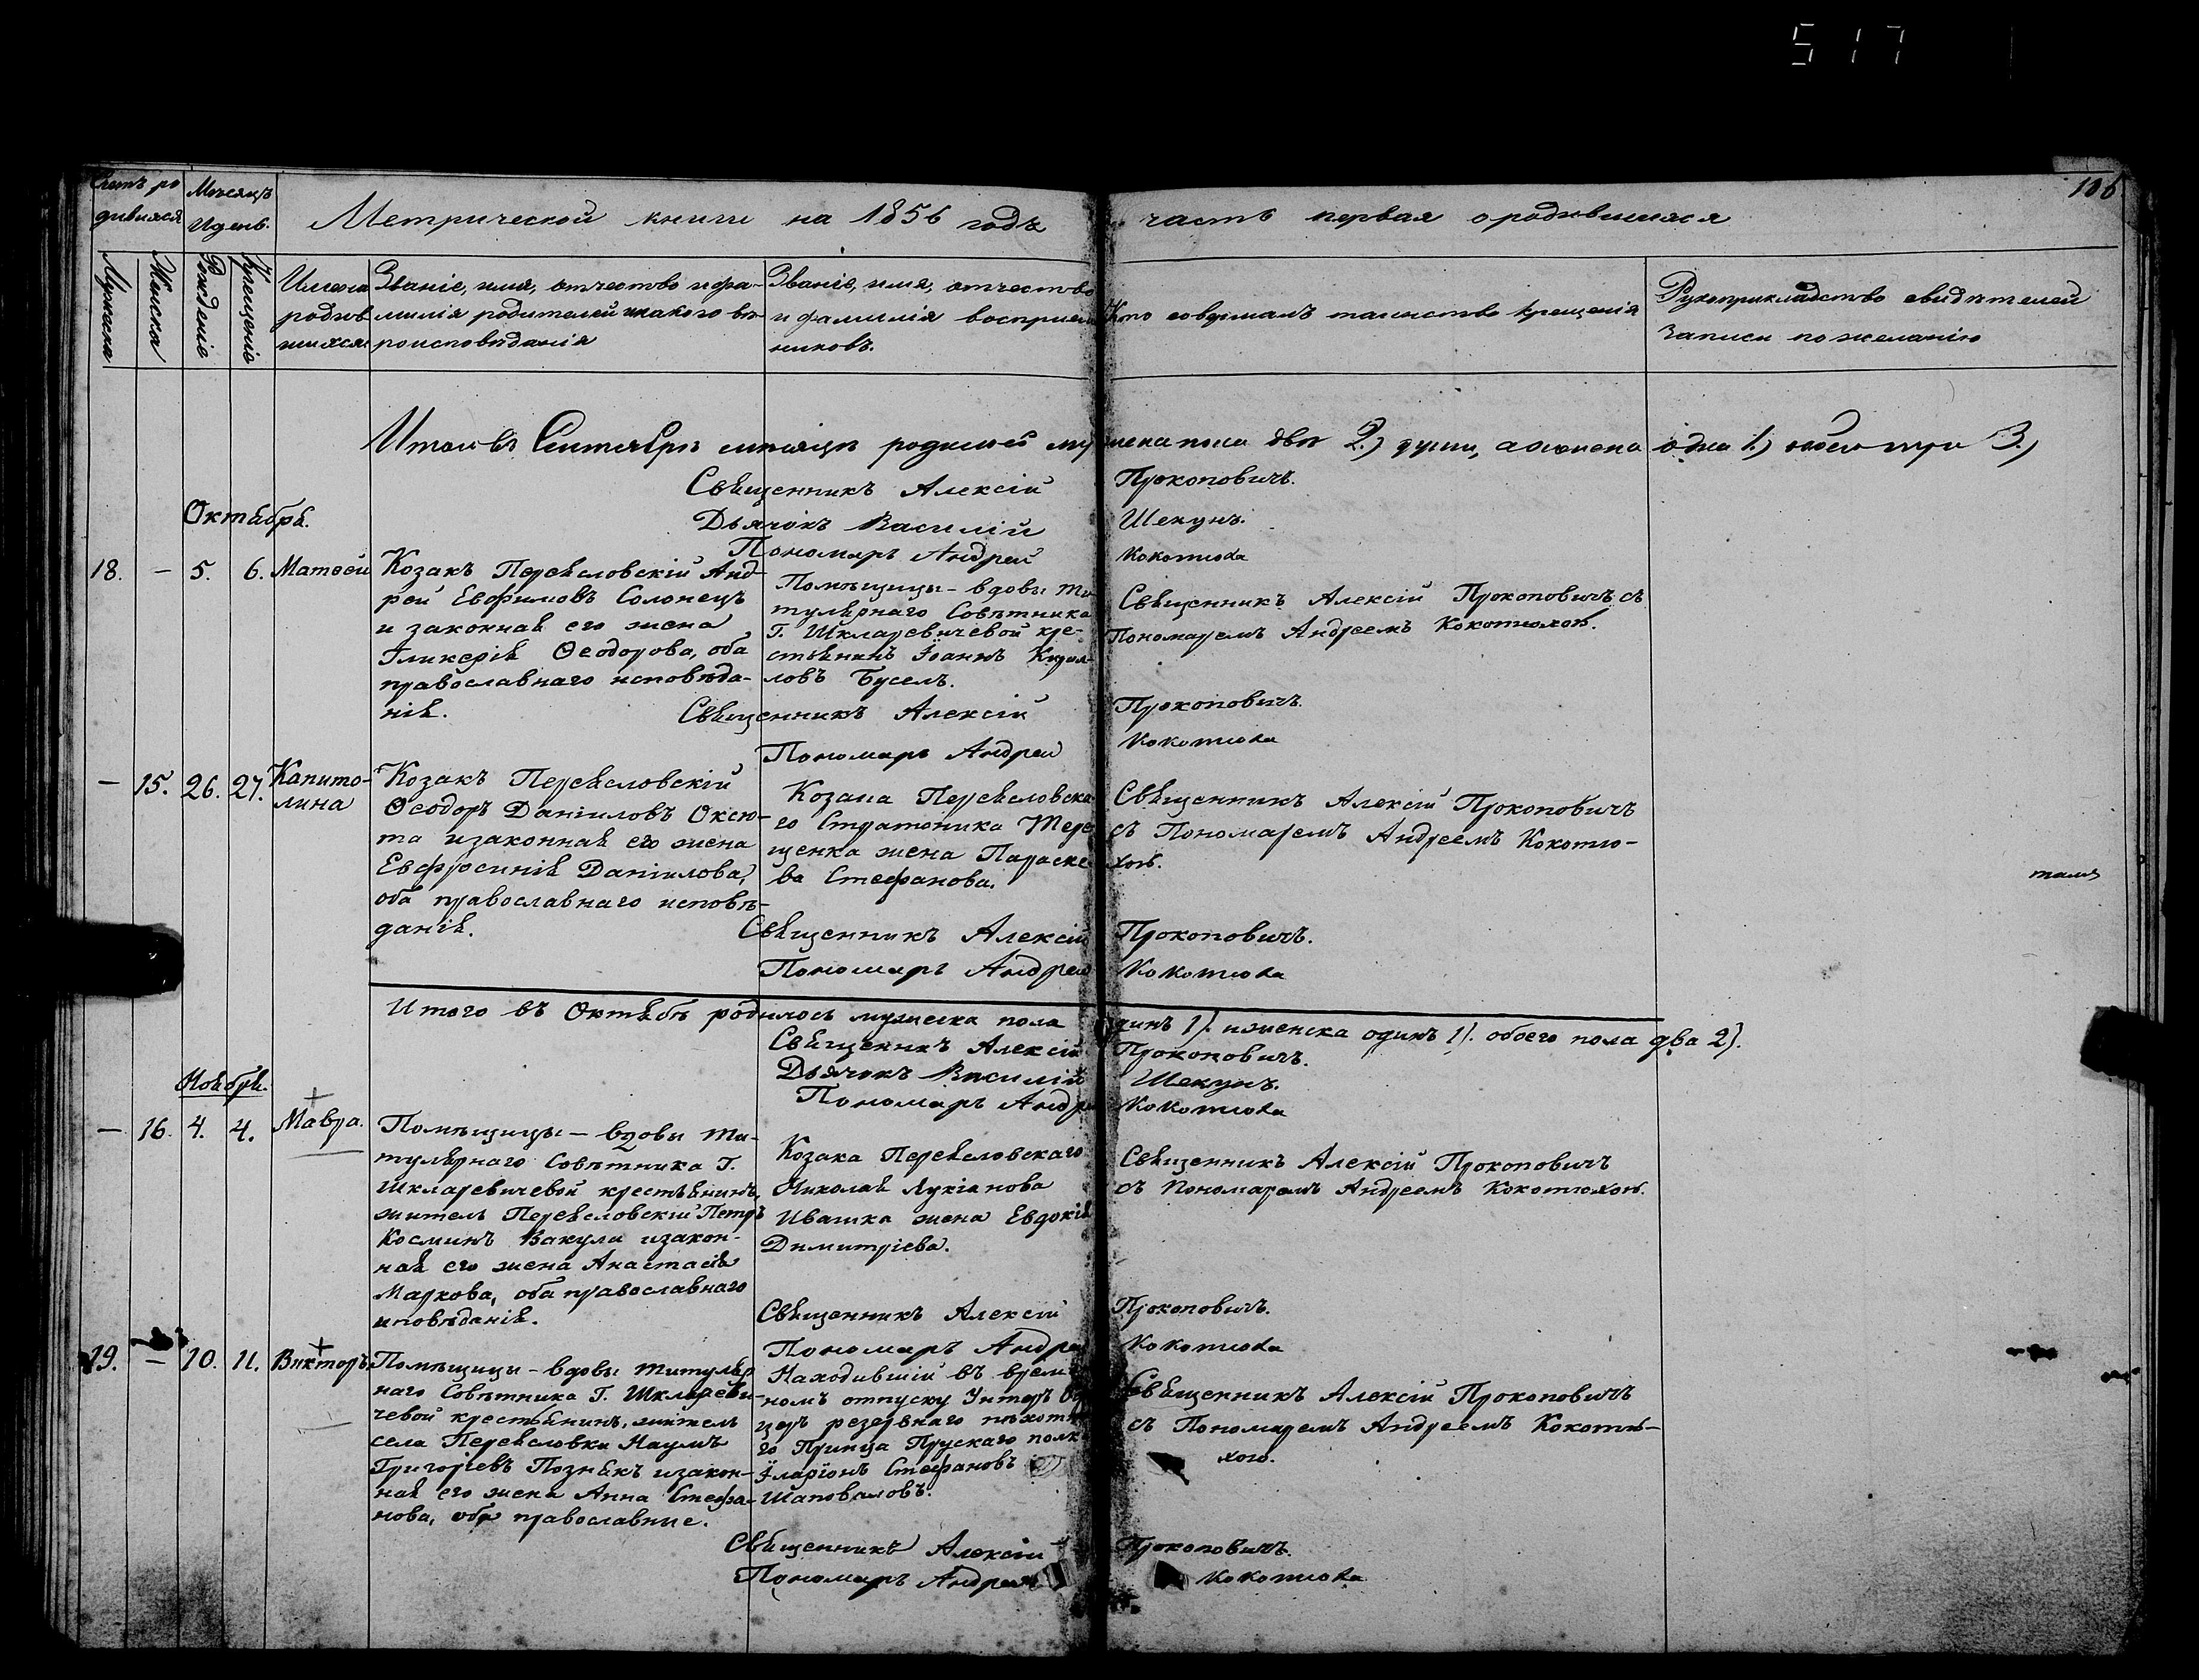 517
106
Счетъ ро
дившихся
Мѣсяцъ
и день.
Метрической книги на 1856 годъ часть первая о родившихся
Мужеска
Женска
Рожденіе
Крещеніе
Имена
родив
шихся
Званіе, имя, отчество и фа-
милія родителей и какого вѣ-
роисповѣданія
Званіе, имя, отчество
и фамилія восприем
никовъ.
Кто совершалъ таинство крещенія
Рукоприкладство свидѣтелей
записи по желанію
Итого въ Сентябрѣ мѣсяцѣ родилось мужеска пола двѣ 2.) души, а женска одна 1.) обоего три 3.)
Священникъ Алексій Прокоповичъ.
Октября.
Дьячокъ Василій Шекунъ.
Пономарь Андрей Кокотюха
18. — 5. 6. Матвей
Козакъ Переясловскій Анд-
рей Евфимовъ Солонецъ
и законная его жена
Гликерія Ѳеодорова, оба
православнаго исповѣда-
нія.
Помѣщицы - вдовы Ти
тулярнаго Совѣтника
Г. Шкларевичевой кре-
стьянинъ Іоаннъ
ловъ Буселъ.
Священникъ Алексій Прокоповичъ съ
Пономаремъ Андреемъ Кокотюхою.
Священникъ Алексій Прокоповичъ.
Пономарь Андрей Кокотюха
— 15. 26. 27. Капито-
лина
Козакъ Переясловскій
Ѳеодоръ Даніиловъ Оксю-
та и законная его жена
Евфросинія Даніилова,
оба православнаго исповѣ-
данія.
Козака Переясловска
го Стратоника Тере
щенка жена Параске
ва Стефанова.
Священникъ Алексій Прокоповичъ
съ Пономаремъ Андреемъ Кокотю-
хою.
Священникъ Алексій Прокоповичъ.
Пономарь Андрей Кокотюха
Итого въ Октябѣ родилось мужеска пола одинъ 1). и женска одинъ 1). обоего пола два 2).
Священникъ Алексій Прокоповичъ.
Дьячокъ Василій Шекунъ.
Пономарь Андрей Кокотюха
Ноября.
— 16. 4. 4. Мавра.
Помѣщицы - вдовы Ти-
тулярнаго Совѣтника Г.
Шкларевичевой крестьянинъ,
житель Переясловскій Петръ
Косминъ Вакула и закон-
ная его жена Анастасія
Маркова, оба православнаго
иповѣданія.
Козака Переясловскаго
Николая Лукіанова
Ивашка жена Евдокія
Димитріева.
Священникъ Алексій Прокоповичъ
съ Пономаремъ Андреемъ Кокотюхою.
Священникъ Алексій Прокоповичъ.
Пономарь Андрей Кокотюха
19. — 10. 11. Викторъ
Помѣщицы - вдовы Титуляр
наго Совѣтника Г. Шкляреви-
чевой крестьянинъ, житель
села Переясловки Наумъ
Григоріевъ Познякъ и закон-
ная его жена Анна Стефа-
нова, оба православные.
Находившій въ времен
номъ отпуску Унтеръ Офи
церъ резервнаго пѣхотна
го Принца Прускаго полка
Іларіонъ Стефановъ
Шаповаловъ.
Священникъ Алексій Прокоповичъ
съ Пономаремъ Андреемъ Кокотю-
хою.
Священникъ Алексій Прокоповичъ.
Пономарь Андрей Кокотюха